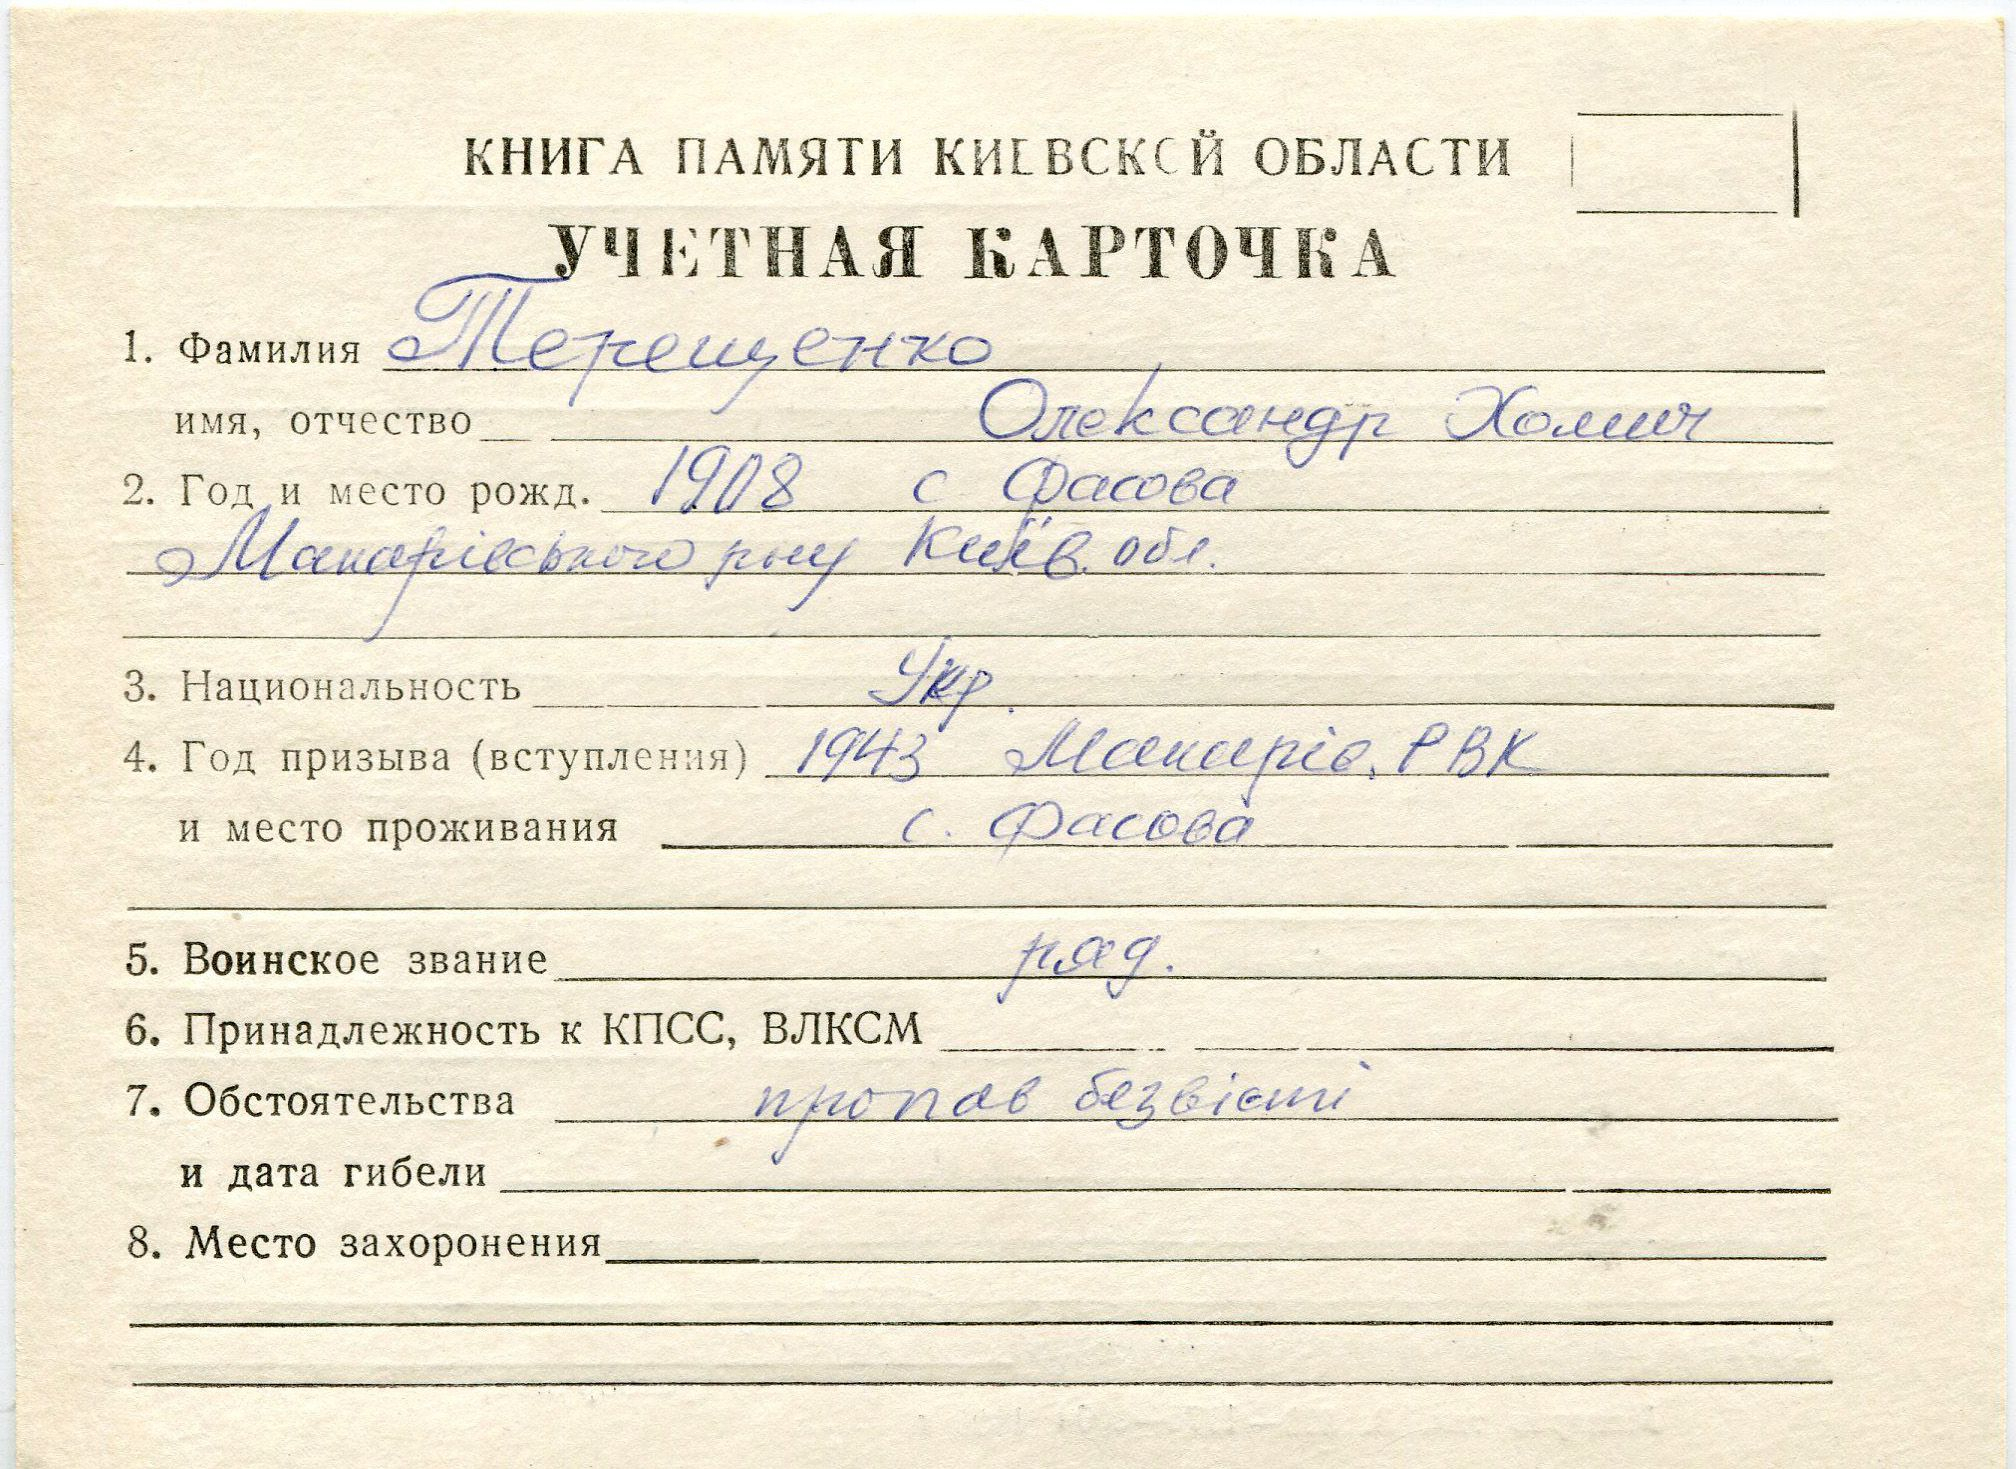 КНИГА ПАМЯТИ КИЕВСКОЙ ОБЛАСТИ
УЧЕТНАЯ КАРТОЧКА
1. Фамилия Терещенко
имя, отчество Олександр Хомич
2. Год и место рожд. 1908 с Фасова
Макарівського р-ну Київ. обл.
3. Национальность Укр.
4. Год призыва (вступления) 1943 Макарів. РВК
и место проживания с. Фасова
5. Воинское звание ряд.
6. Принадлежность к КПСС, ВЛКСМ
7. Обстоятельства пропав безвісті
и дата гибели
8. Место захоронения